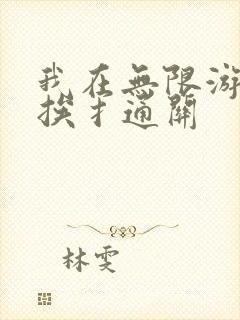 我在無限游
挨扌通關
林雯